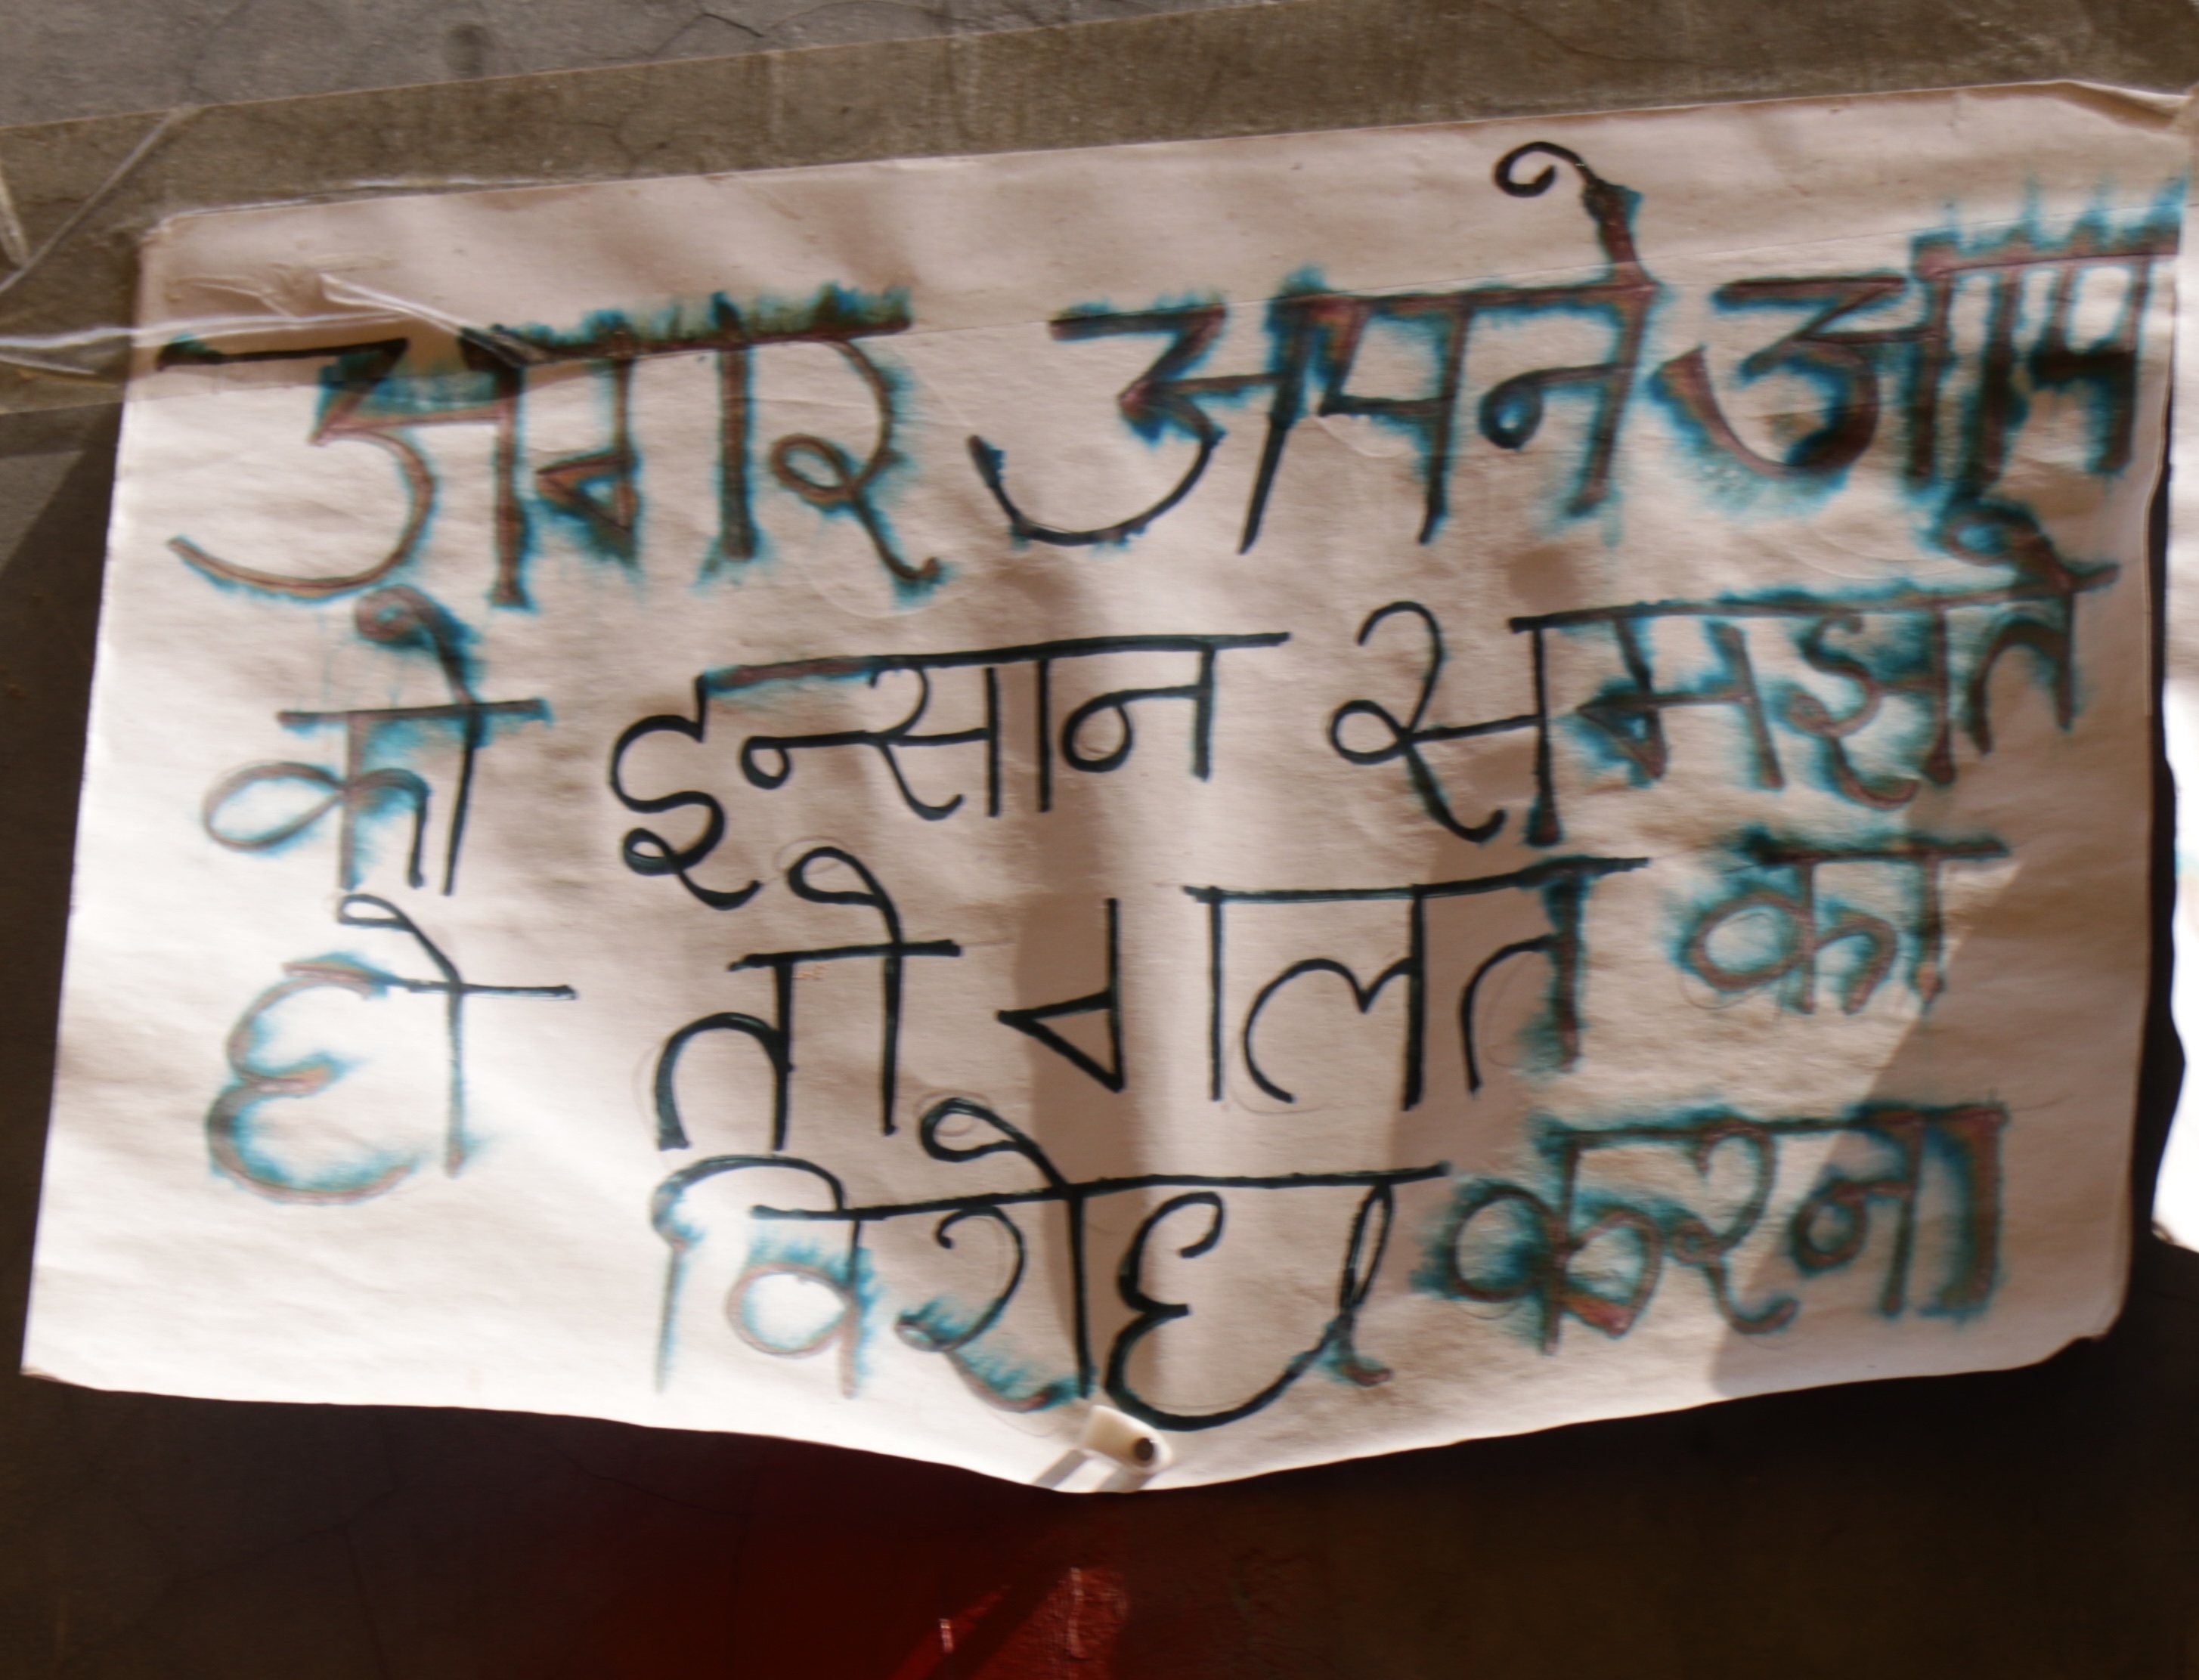 अगर अपने आप
को इन्सान समझते
हो तो गलत का
विरोध करना